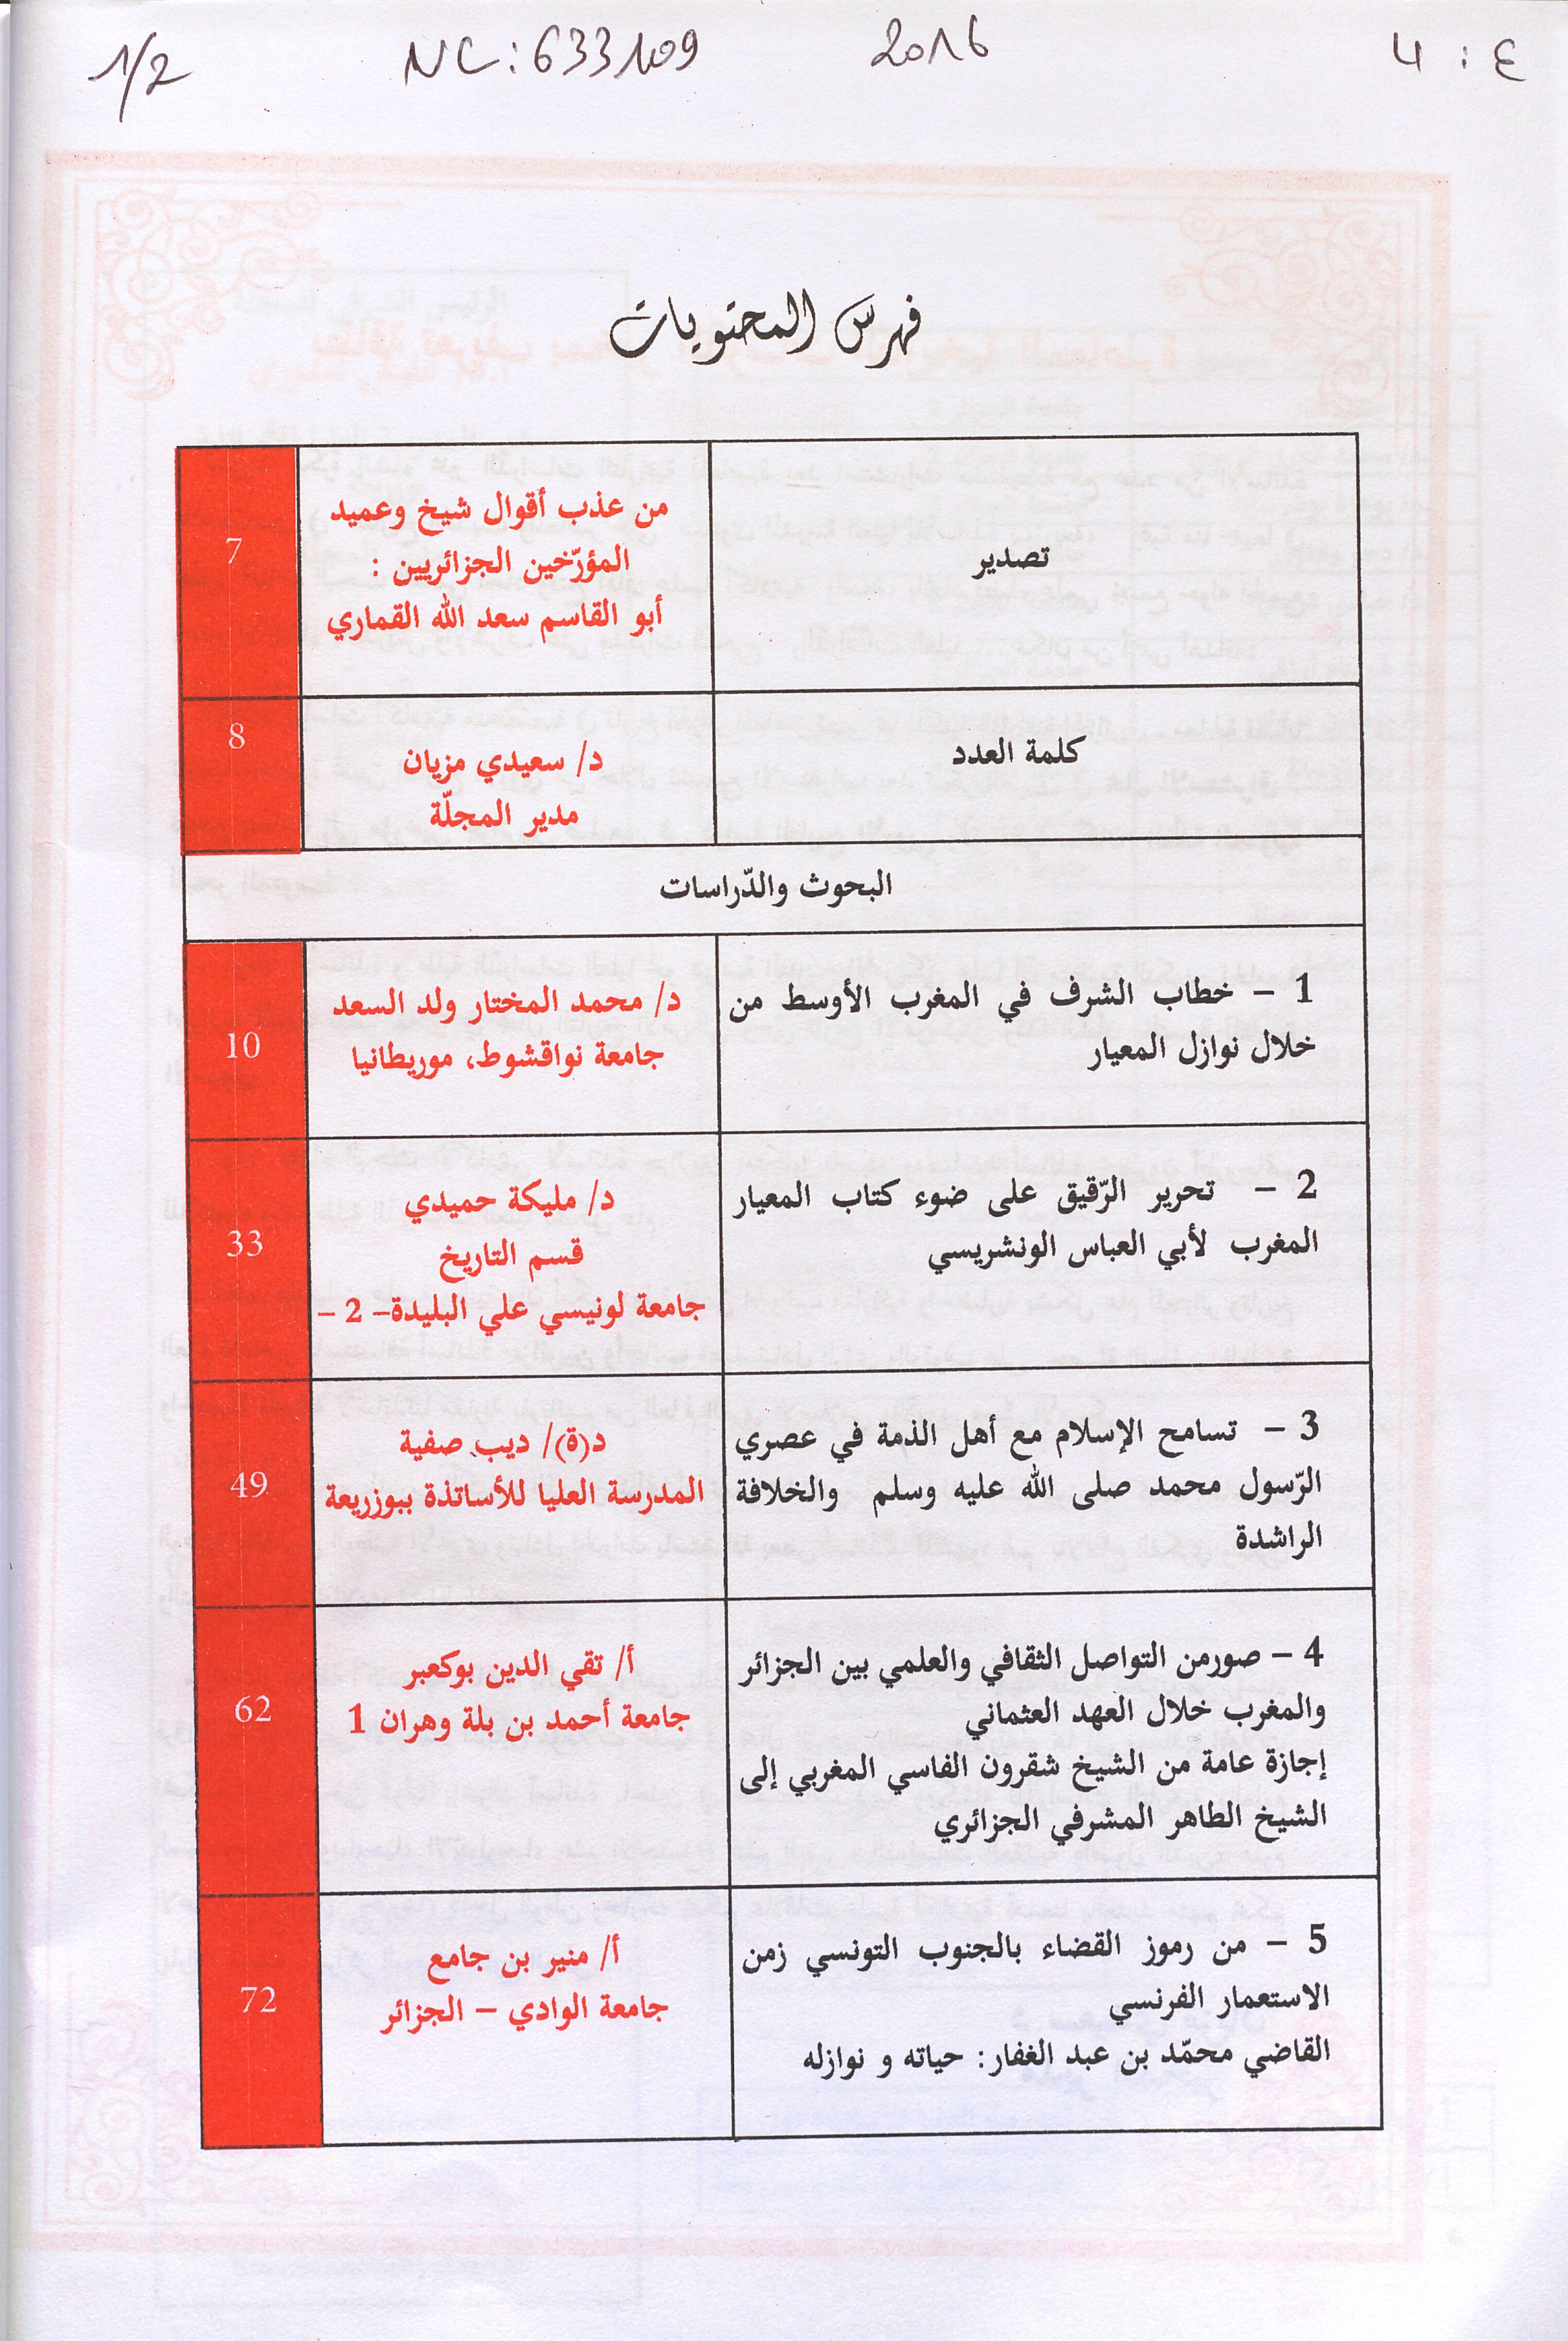 ع : 4
2016
NC: 633109
1/2
فهرس المحتويات
تصدير
من عذب أقوال شيخ وعميد
المؤرّخين الجزائريين :
أبو القاسم سعد الله القماري
7
كلمة العدد
د/ سعيدي مزيان
مدير المجلّة
8
البحوث والدّراسات
1 – خطاب الشرف في المغرب الأوسط من
خلال نوازل المعيار
د/ محمد المختار ولد السعد
جامعة نواقشوط، موريطانيا
10
2 – تحرير الرّقيق على ضوء كتاب المعيار
المغرب لأبي العباس الونشريسي
د/ مليكة حميدي
قسم التاريخ
جامعة لونيسي علي البليدة– 2 –
33
3 – تسامح الإسلام مع أهل الذمة في عصري
الرّسول محمد صلى الله عليه وسلم والخلافة
الراشدة
د(ة)/ ديب صفية
المدرسة العليا للأساتذة ببوزريعة
49
4 – صورمن التواصل الثقافي والعلمي بين الجزائر
والمغرب خلال العهد العثماني
إجازة عامة من الشيخ شقرون الفاسي المغربي إلى
الشيخ الطاهر المشرفي الجزائري
أ/ تقي الدين بوكعبر
جامعة أحمد بن بلة وهران 1
62
5 – من رموز القضاء بالجنوب التونسي زمن
الاستعمار الفرنسي
القاضي محمّد بن عبد الغفار: حياته و نوازله
أ/ منير بن جامع
جامعة الوادي – الجزائر
72